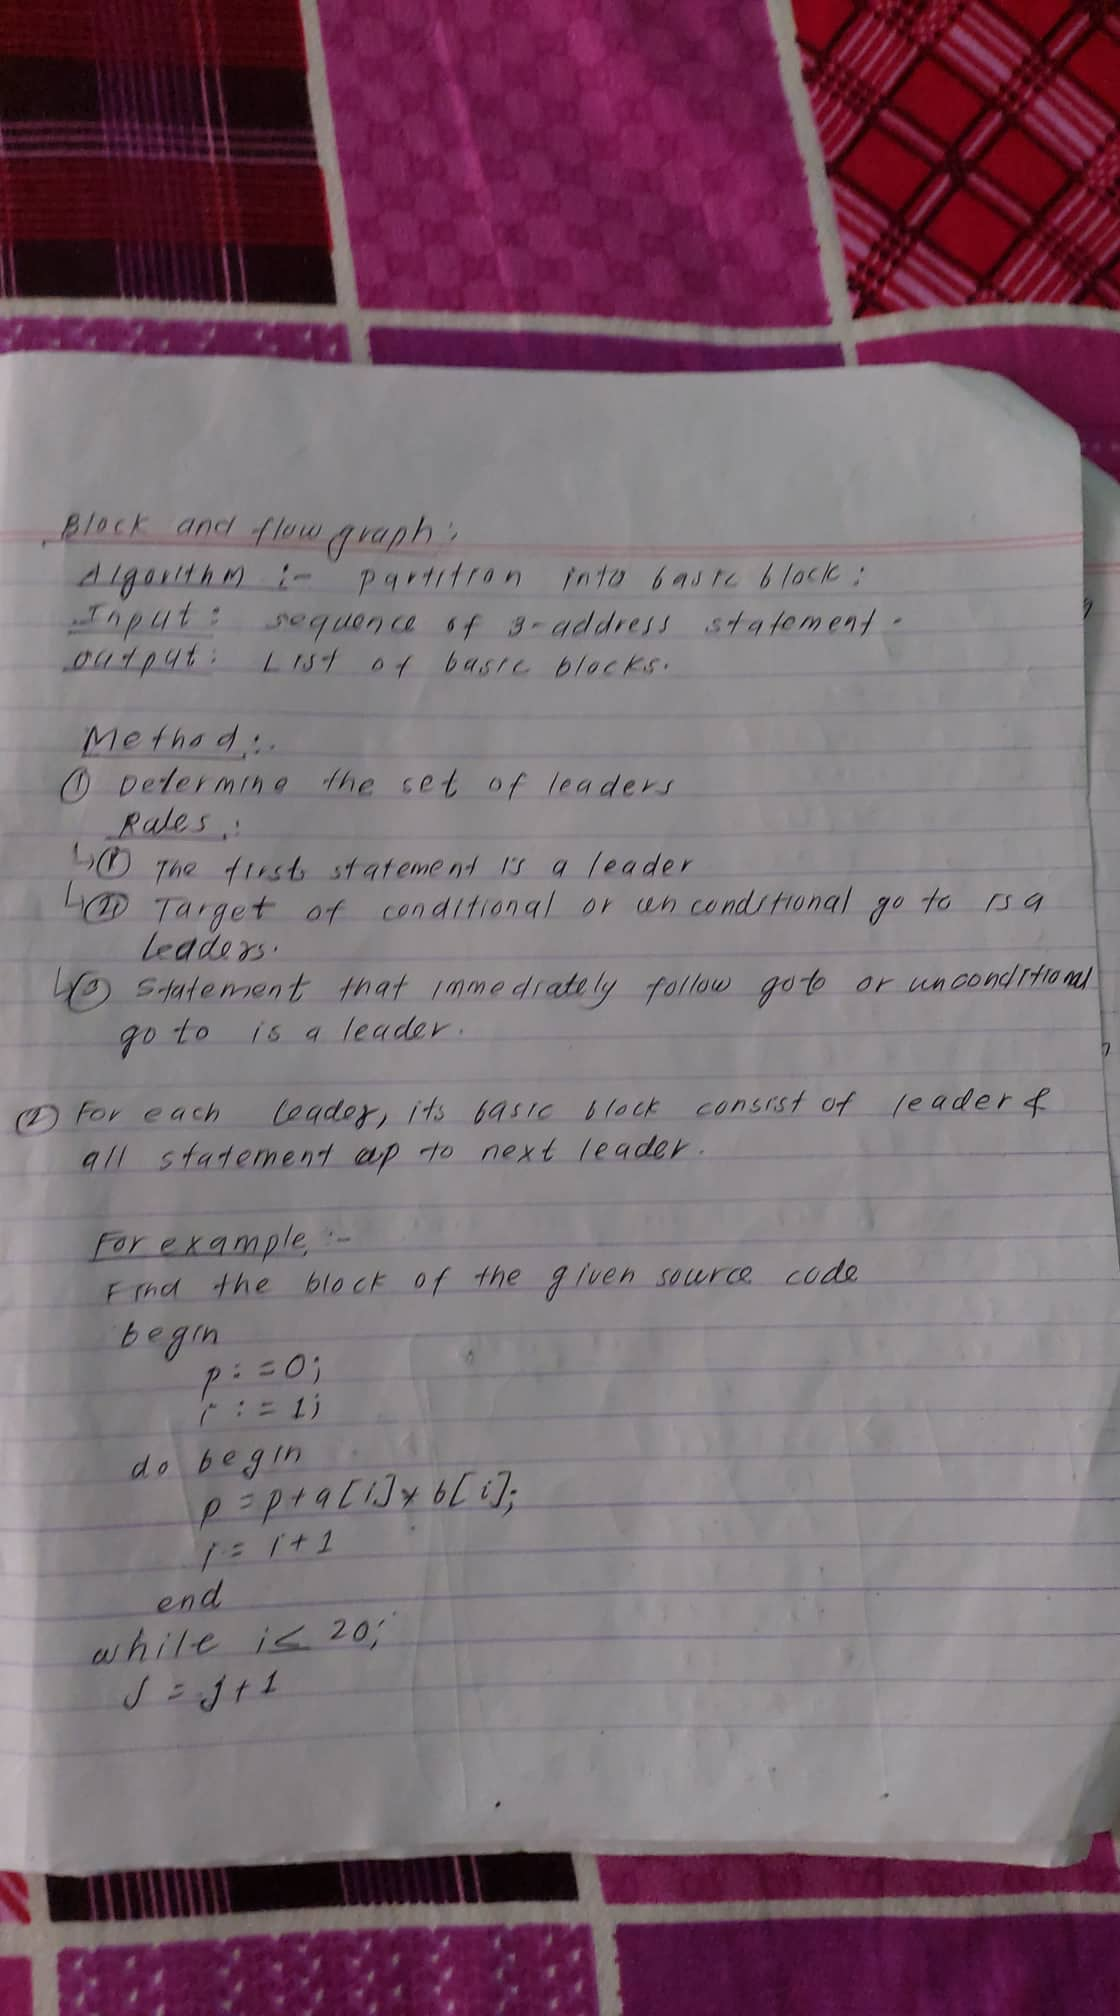 Block and flow graph:
Algorithm :- partition into basic block:
Input: sequence of 3-address statement.
output: List of basic blocks.
Method:.
① Determine the set of leaders
Rules:
↳① The first statement is a leader
↳② Target of conditional or unconditional go to is a
leaders.
↳③ Statement that immediately follow goto or unconditional
go to is a leader.
② For each leader, its basic block consist of leader &
all statement up to next leader.
For example :-
Find the block of the given source code
begin
p:=0;
i:=1;
do begin
p=p+a[i]*b[i];
i=i+1
end
while i≤20;
J=j+1